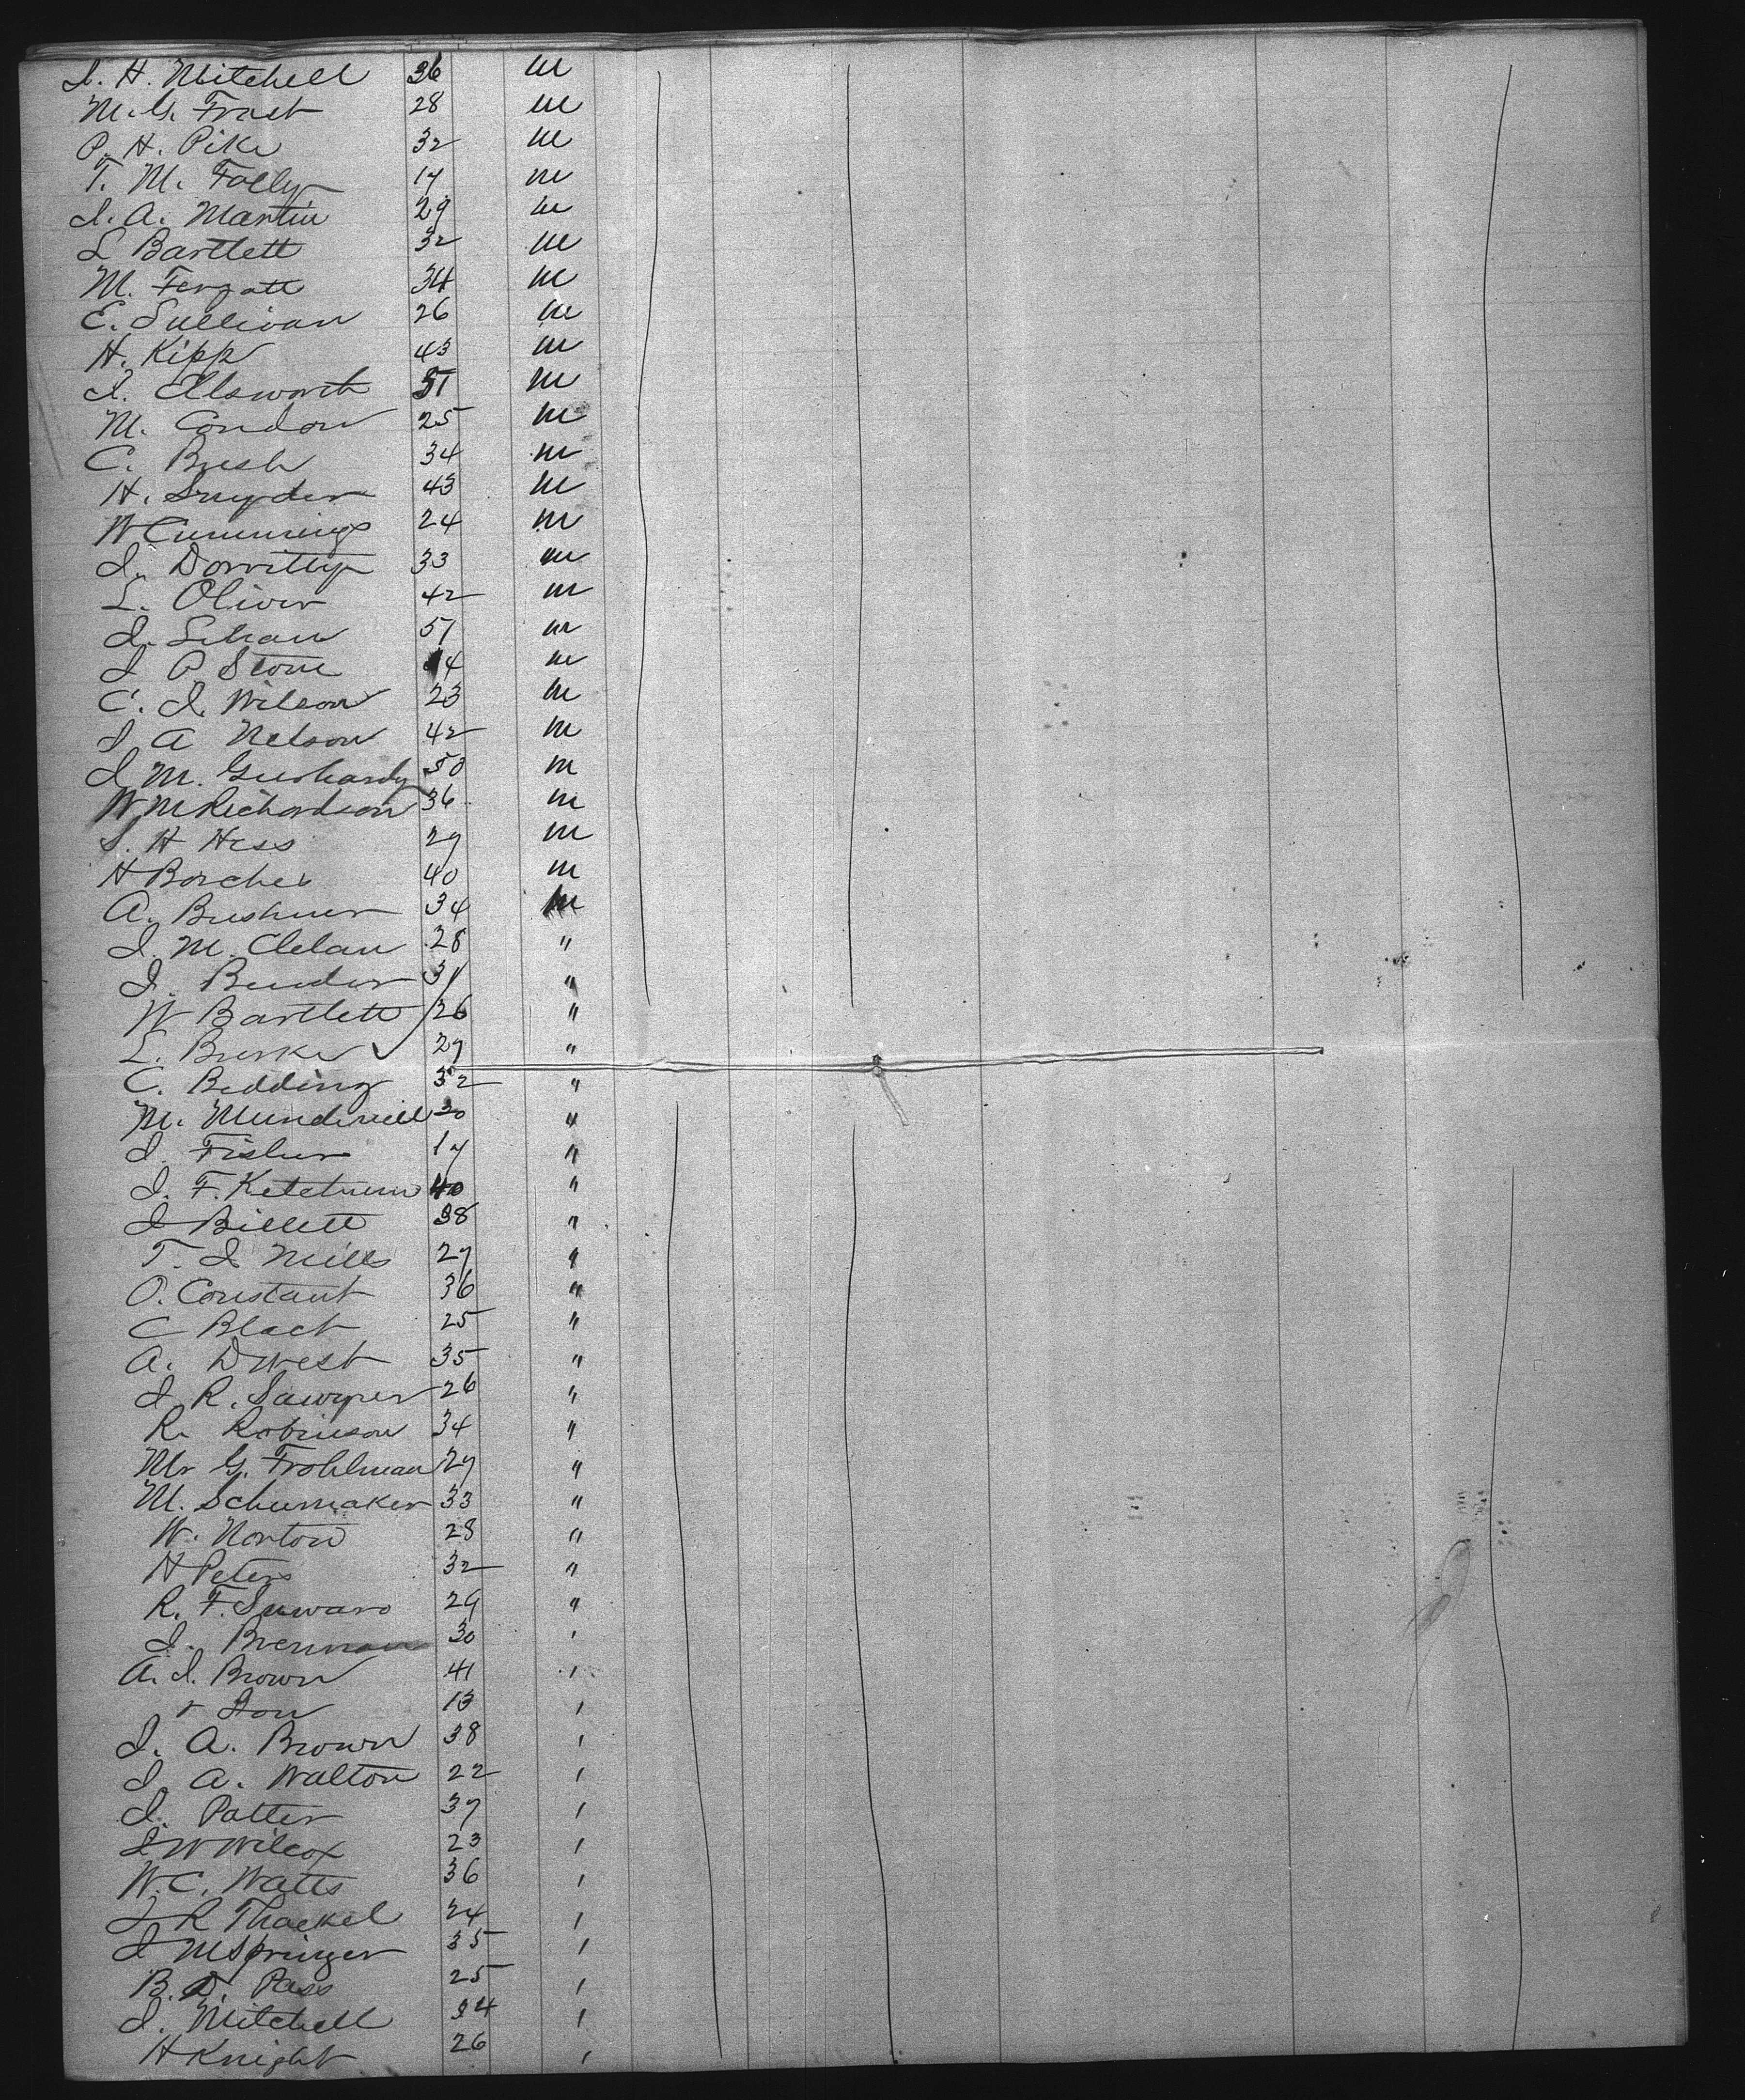 J. H. Mitchell 36 m
M. G. Fract 28 m
P. H. Pike 32 m
T. M. Folly 17 m
J. A. Martin 29 m
L Bartlett 32 m
M. 34 m
E. Sullivan 26 m
H. Kipp 43 m
J. Ellsworth 51 m
M. Condon 25 m
C. Bush 34 m
H. Snyder 43 m
W Cummings 24 m
J. Dorritty 33 m
L. Oliver 42 m
J. Sehau 51 m
J P Stone 14 m
C. J. Wilson 23 m
J A Nelson 42 m
J M. 50 m
W M Richardson 36 m
S. H Hess 29 m
H Borches 40 m
A. Bushner 34 m
J. M. Clelan 28 "
J. Bender 31 "
W Bartlett 26 "
L. Burke 27 "
C. Redding 32 "
M. 20 "
J. Fisher 17 "
J. F. Ketchum 40 "
J Billett 38 "
T. J Mills 27 "
O. Constant 36 "
C Black 25 "
A. D West 35 "
J R. Sawyer 26 "
R. Robinson 34 "
Mr G. Frohlman 27 "
M. Schumaker 33 "
W. Norton 28 "
H Peters 32 "
R. F. Suwaro 29 "
J. Brennan 30 '
A. J. Brown 41 '
+ Son 13 '
J. A. Brown 38 '
J A. Walton 22 '
J. Potter 37 '
J W Wilcox 23 '
W. C. Watts 36 '
J R Thackel 24 '
J M Springer 35 '
B. D. Pass 25 '
J. Mitchell 34 '
H Knight 26 '